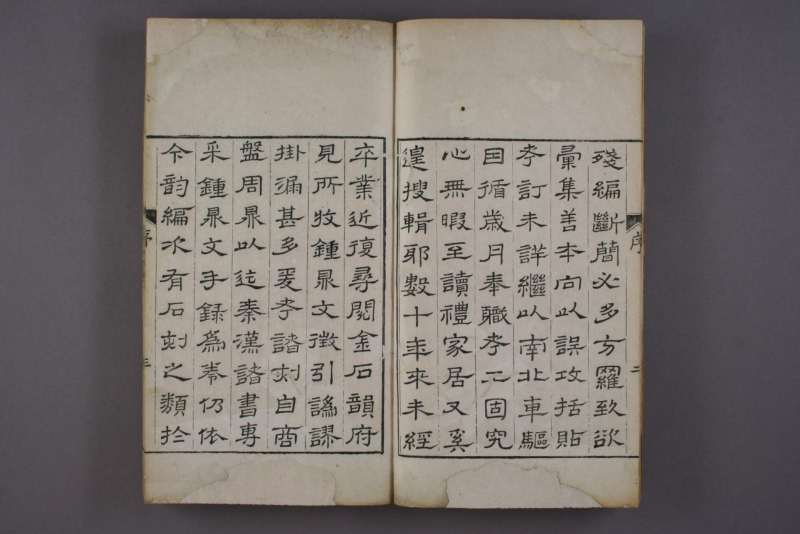 殘編斷簡必多方羅致欲
彙集善本向以誤攻括貼
考訂未詳繼以南北車驅
因循歲月奉職考工固究
心無暇至讀禮家居又奚
遑搜輯耶數十年來未經
序
二
卒業近復尋閱金石韻府
見所收鍾鼎文徵引譌謬
掛漏甚多爰考諸刻自商
盤周鼎以迄秦漢諸書專
采鍾鼎文手錄為袠仍依
今韵編次有石刻之類於
序
三